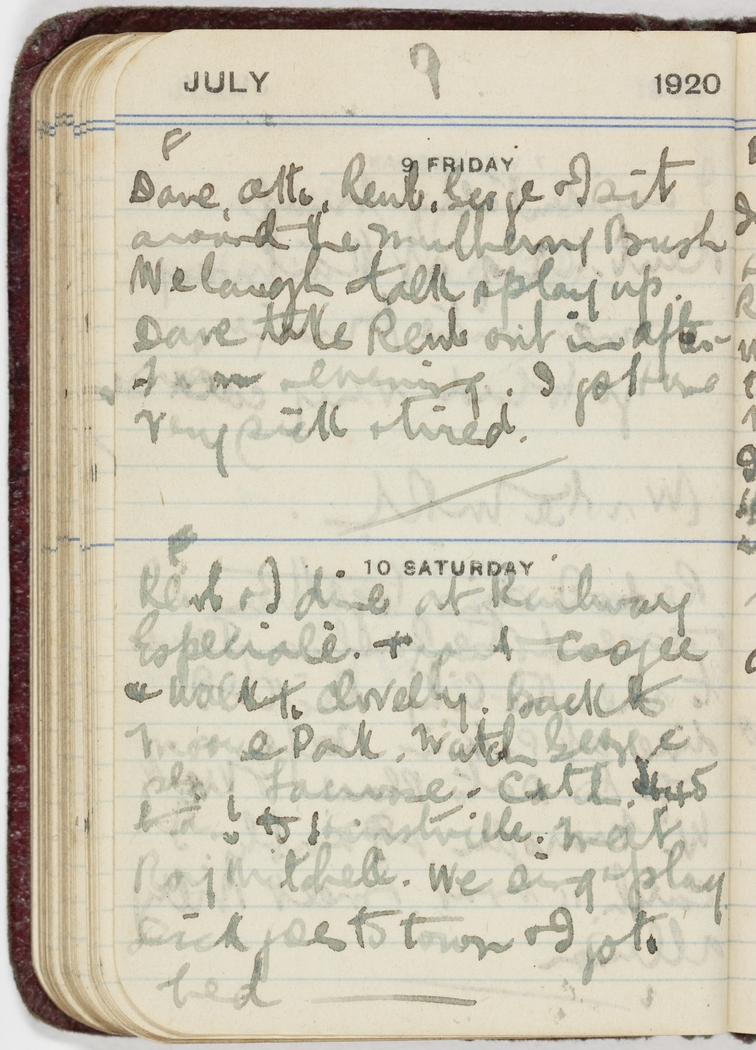 JULY 1920
9 FRIDAY
Dave, Otto, Reub, George & I sit
around the Mulberry Bush
We laugh talk & play up.
Dave take Reub out in after-
evening. I get
very sick & tired.
10 SATURDAY
Reub & I dine at Railway
Especiale. + Coogee
& walk to Clovelly. Back to
Moore Park. Watch George
play Lacrosse. Catch 4.45
to Hurstville. Meet
Roy Mitchell. We sing & play
Dick goes to town & I go to
bed